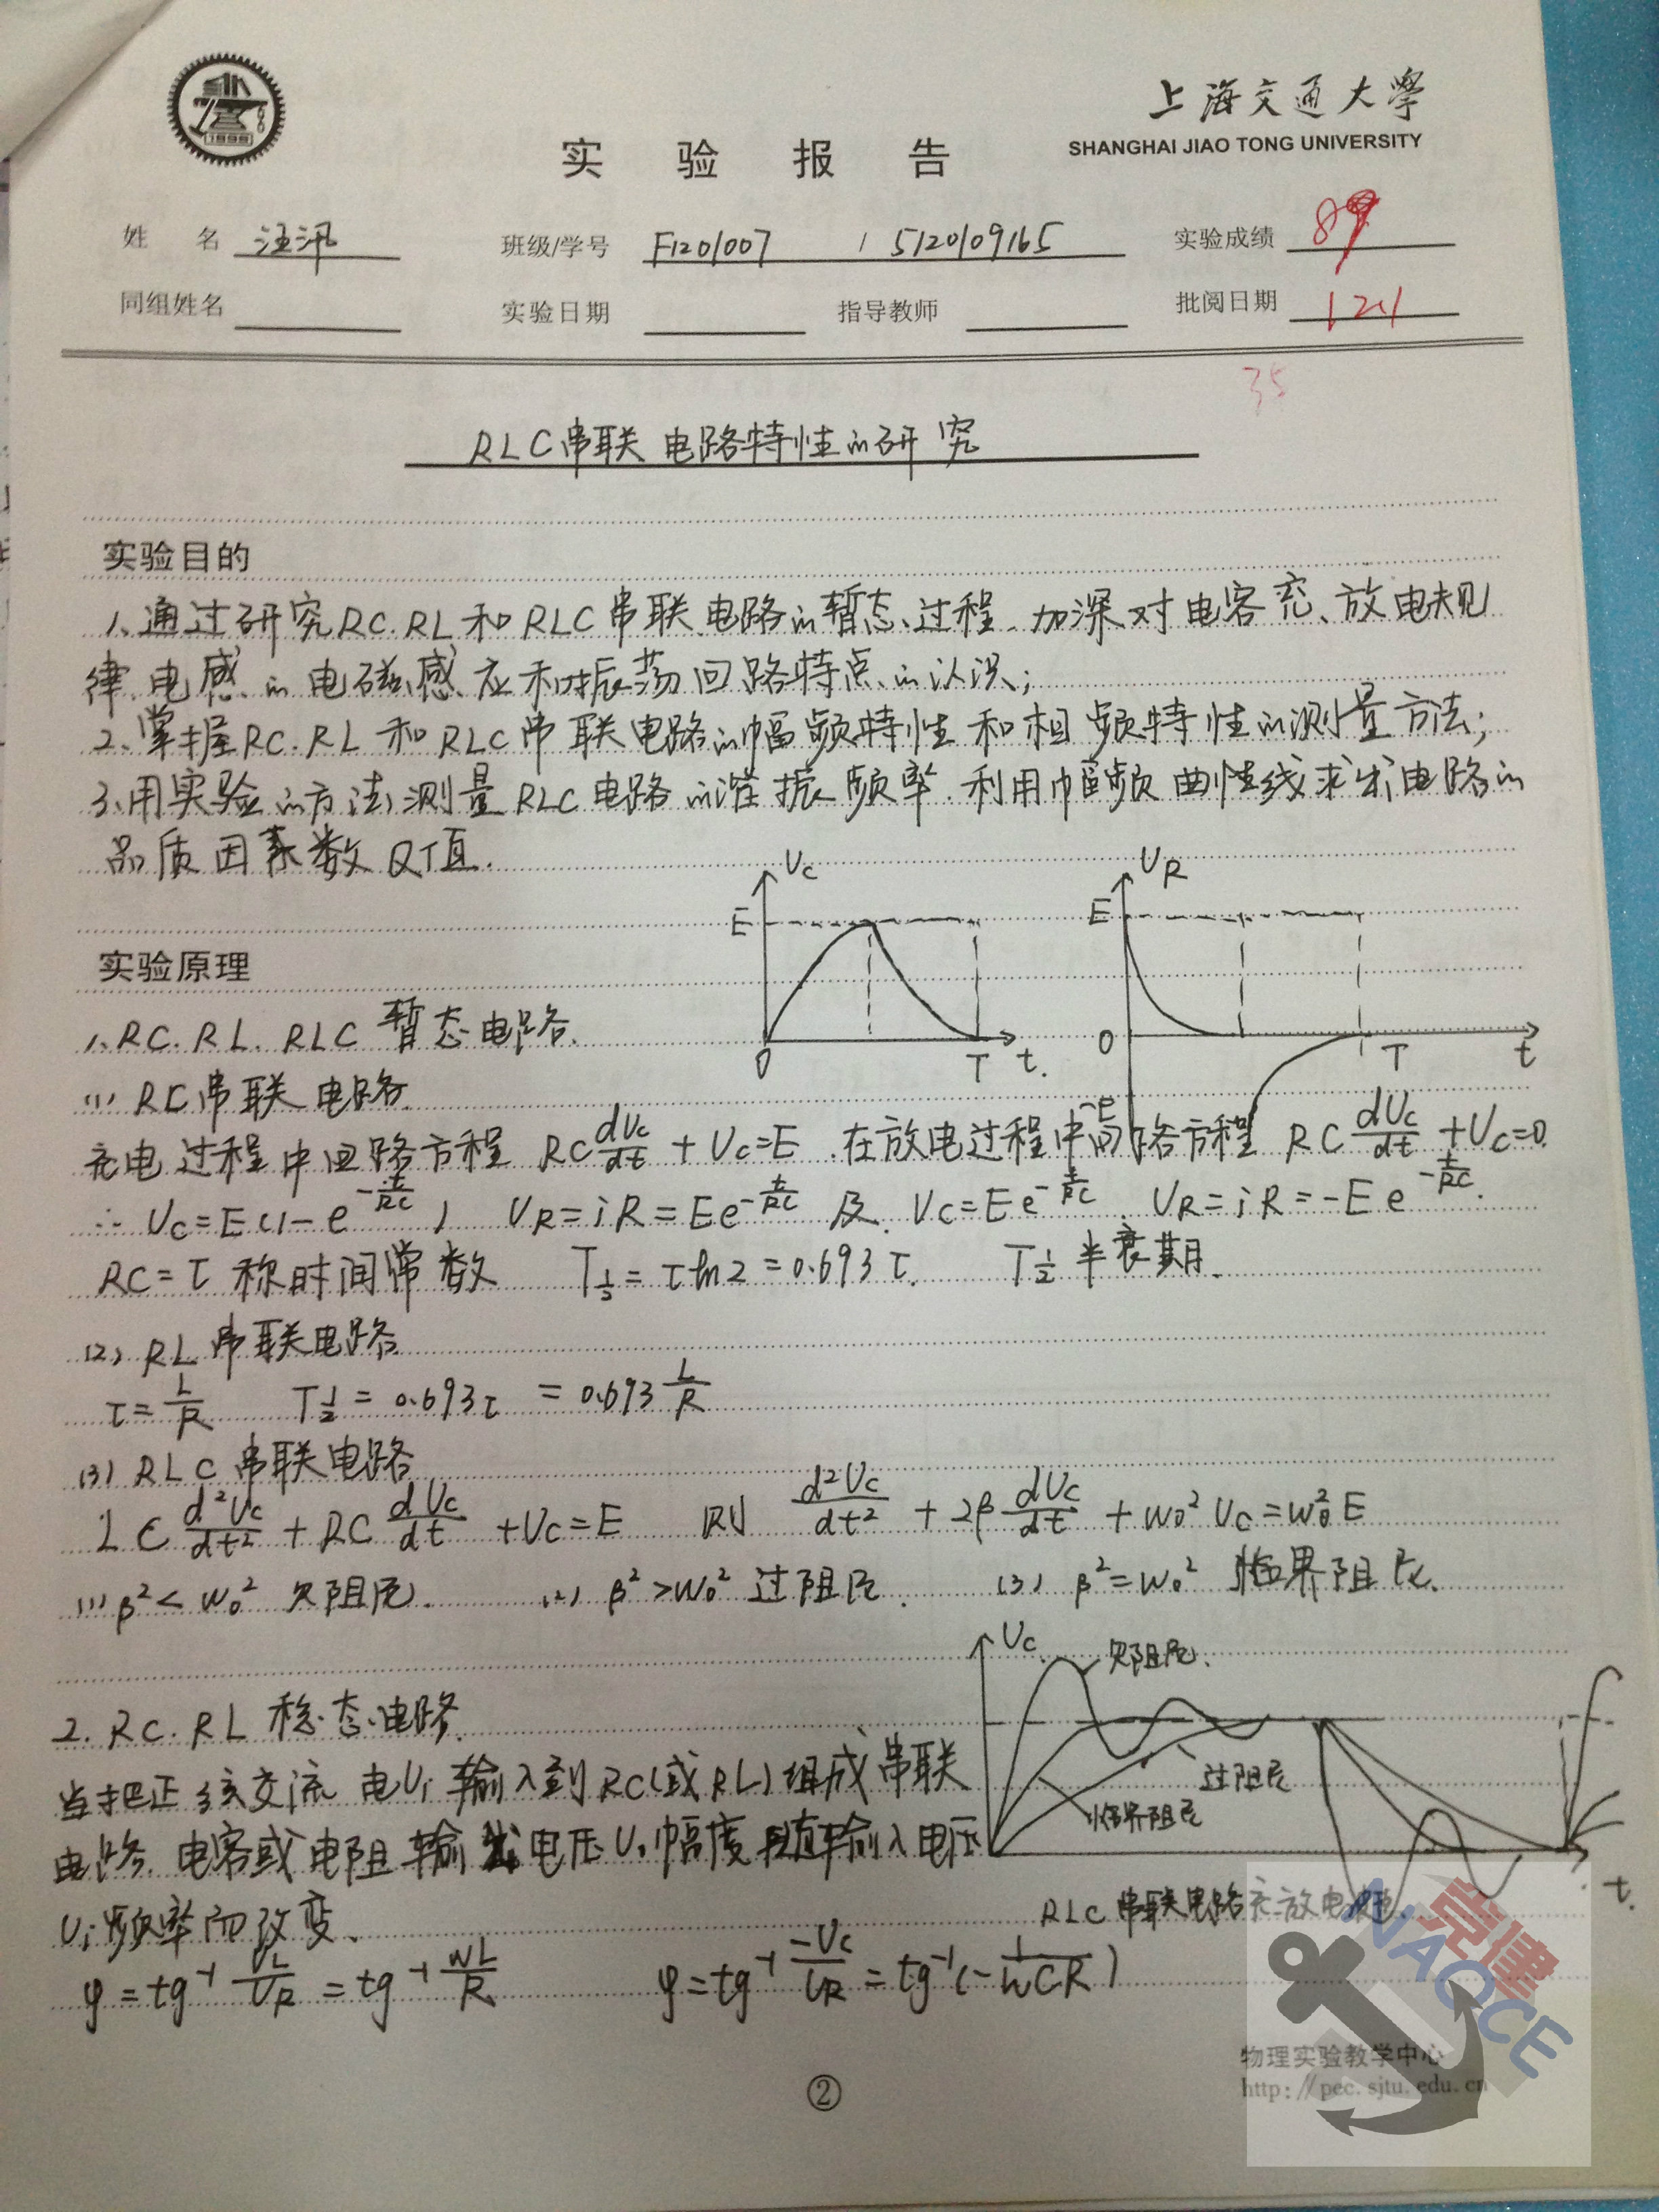 1896
上海交通大學
SHANGHAI JIAO TONG UNIVERSITY
实 验 报 告
姓 名 汪汛 班级/学号 F1201007 / 5120109165 实验成绩 89
同组姓名 实验日期 指导教师 批阅日期 12.1
35
RLC串联电路特性的研究
实验目的
1、通过研究RC.RL和RLC串联电路的暂态过程,加深对电容充、放电规
律、电感的电磁感应和振荡回路特点的认识;
2、掌握RC.RL和RLC串联电路的幅频特性和相频特性的测量方法;
3、用实验的方法测量RLC电路的谐振频率.利用幅频曲线求出电路的
品质因素数Q值.
Uc
E
0 T t.
UR
E
0 T t
-E
实验原理
1、RC.RL.RLC暂态电路.
(1) RC串联电路.
充电过程中回路方程 RC dUc/dt + Uc=E .在放电过程中回路方程 RC dUc/dt +Uc=0.
∴ Uc=E(1-e^{-t/RC}) UR=iR=Ee^{-t/RC} 及 Uc=Ee^{-t/RC}. UR=iR=-Ee^{-t/RC}.
RC=τ 称时间常数 T1/2=τln2=0.693τ. T1/2 半衰期.
(2) RL串联电路
τ=L/R T1/2=0.693τ =0.693 L/R
(3) RLC串联电路
LC d²Uc/dt² + RC dUc/dt +Uc=E 则 d²Uc/dt² + 2β dUc/dt + ω0² Uc=ω0² E
(1) β²<ω0² 欠阻尼. (2) β²>ω0² 过阻尼. (3) β²=ω0² 临界阻尼.
Uc
欠阻尼.
过阻尼
临界阻尼
t.
RLC串联电路充放电
2. RC.RL稳态电路.
当把正弦交流电Ui输入到RC(或RL)组成串联
电路.电容或电阻输出电压U。幅度随输入电压
Ui频率而改变.
φ=tg⁻¹ UL/UR = tg⁻¹ ωL/R φ=tg⁻¹ -Uc/UR = tg⁻¹(-1/ωCR)
党建
NAOCE
物理实验教学中心
http://pec.sjtu.edu.cn
②